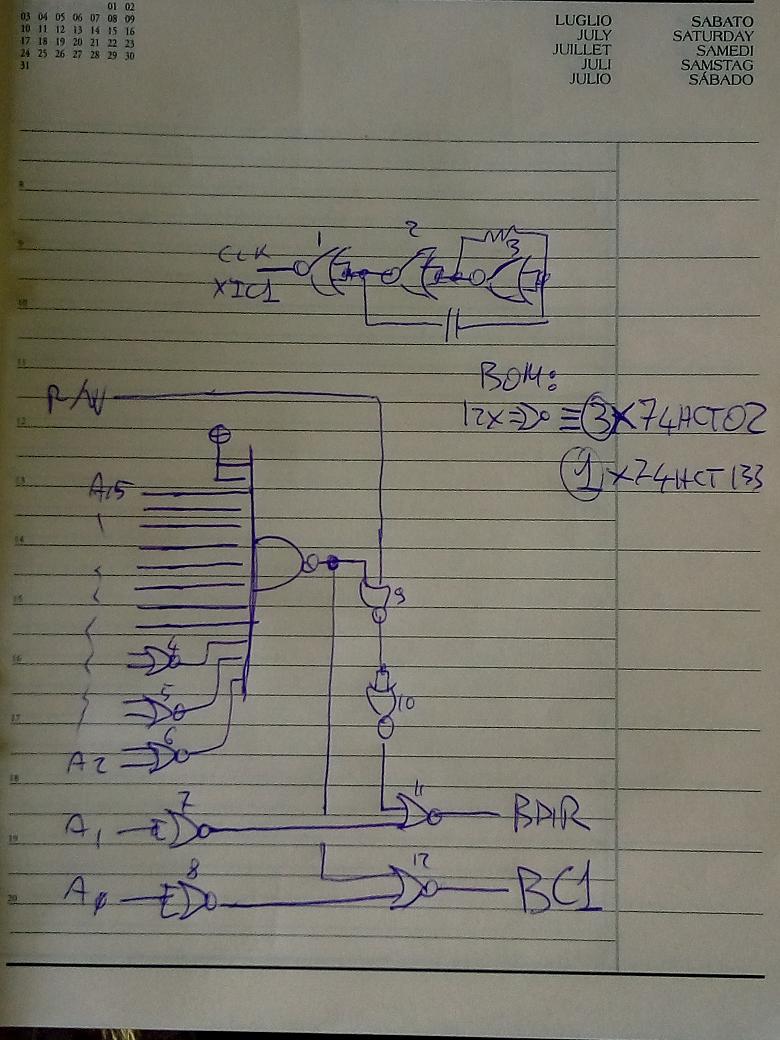 01 02
03 04 05 06 07 08 09
10 11 12 13 14 15 16
17 18 19 20 21 22 23
24 25 26 27 28 29 30
31
LUGLIO SABATO
JULY SATURDAY
JUILLET SAMEDI
JULI SAMSTAG
JULIO SÁBADO
8
9
1 2 3
CLK
XIC1
10
11
BOM:
R/W
12X ≡ 3X74HCT02
12
1X74HCT133
13
A15
14
9
15
4
16
5
10
17
6
A2
18
7 11
A1 BDIR
19
8 12
A0 BC1
20